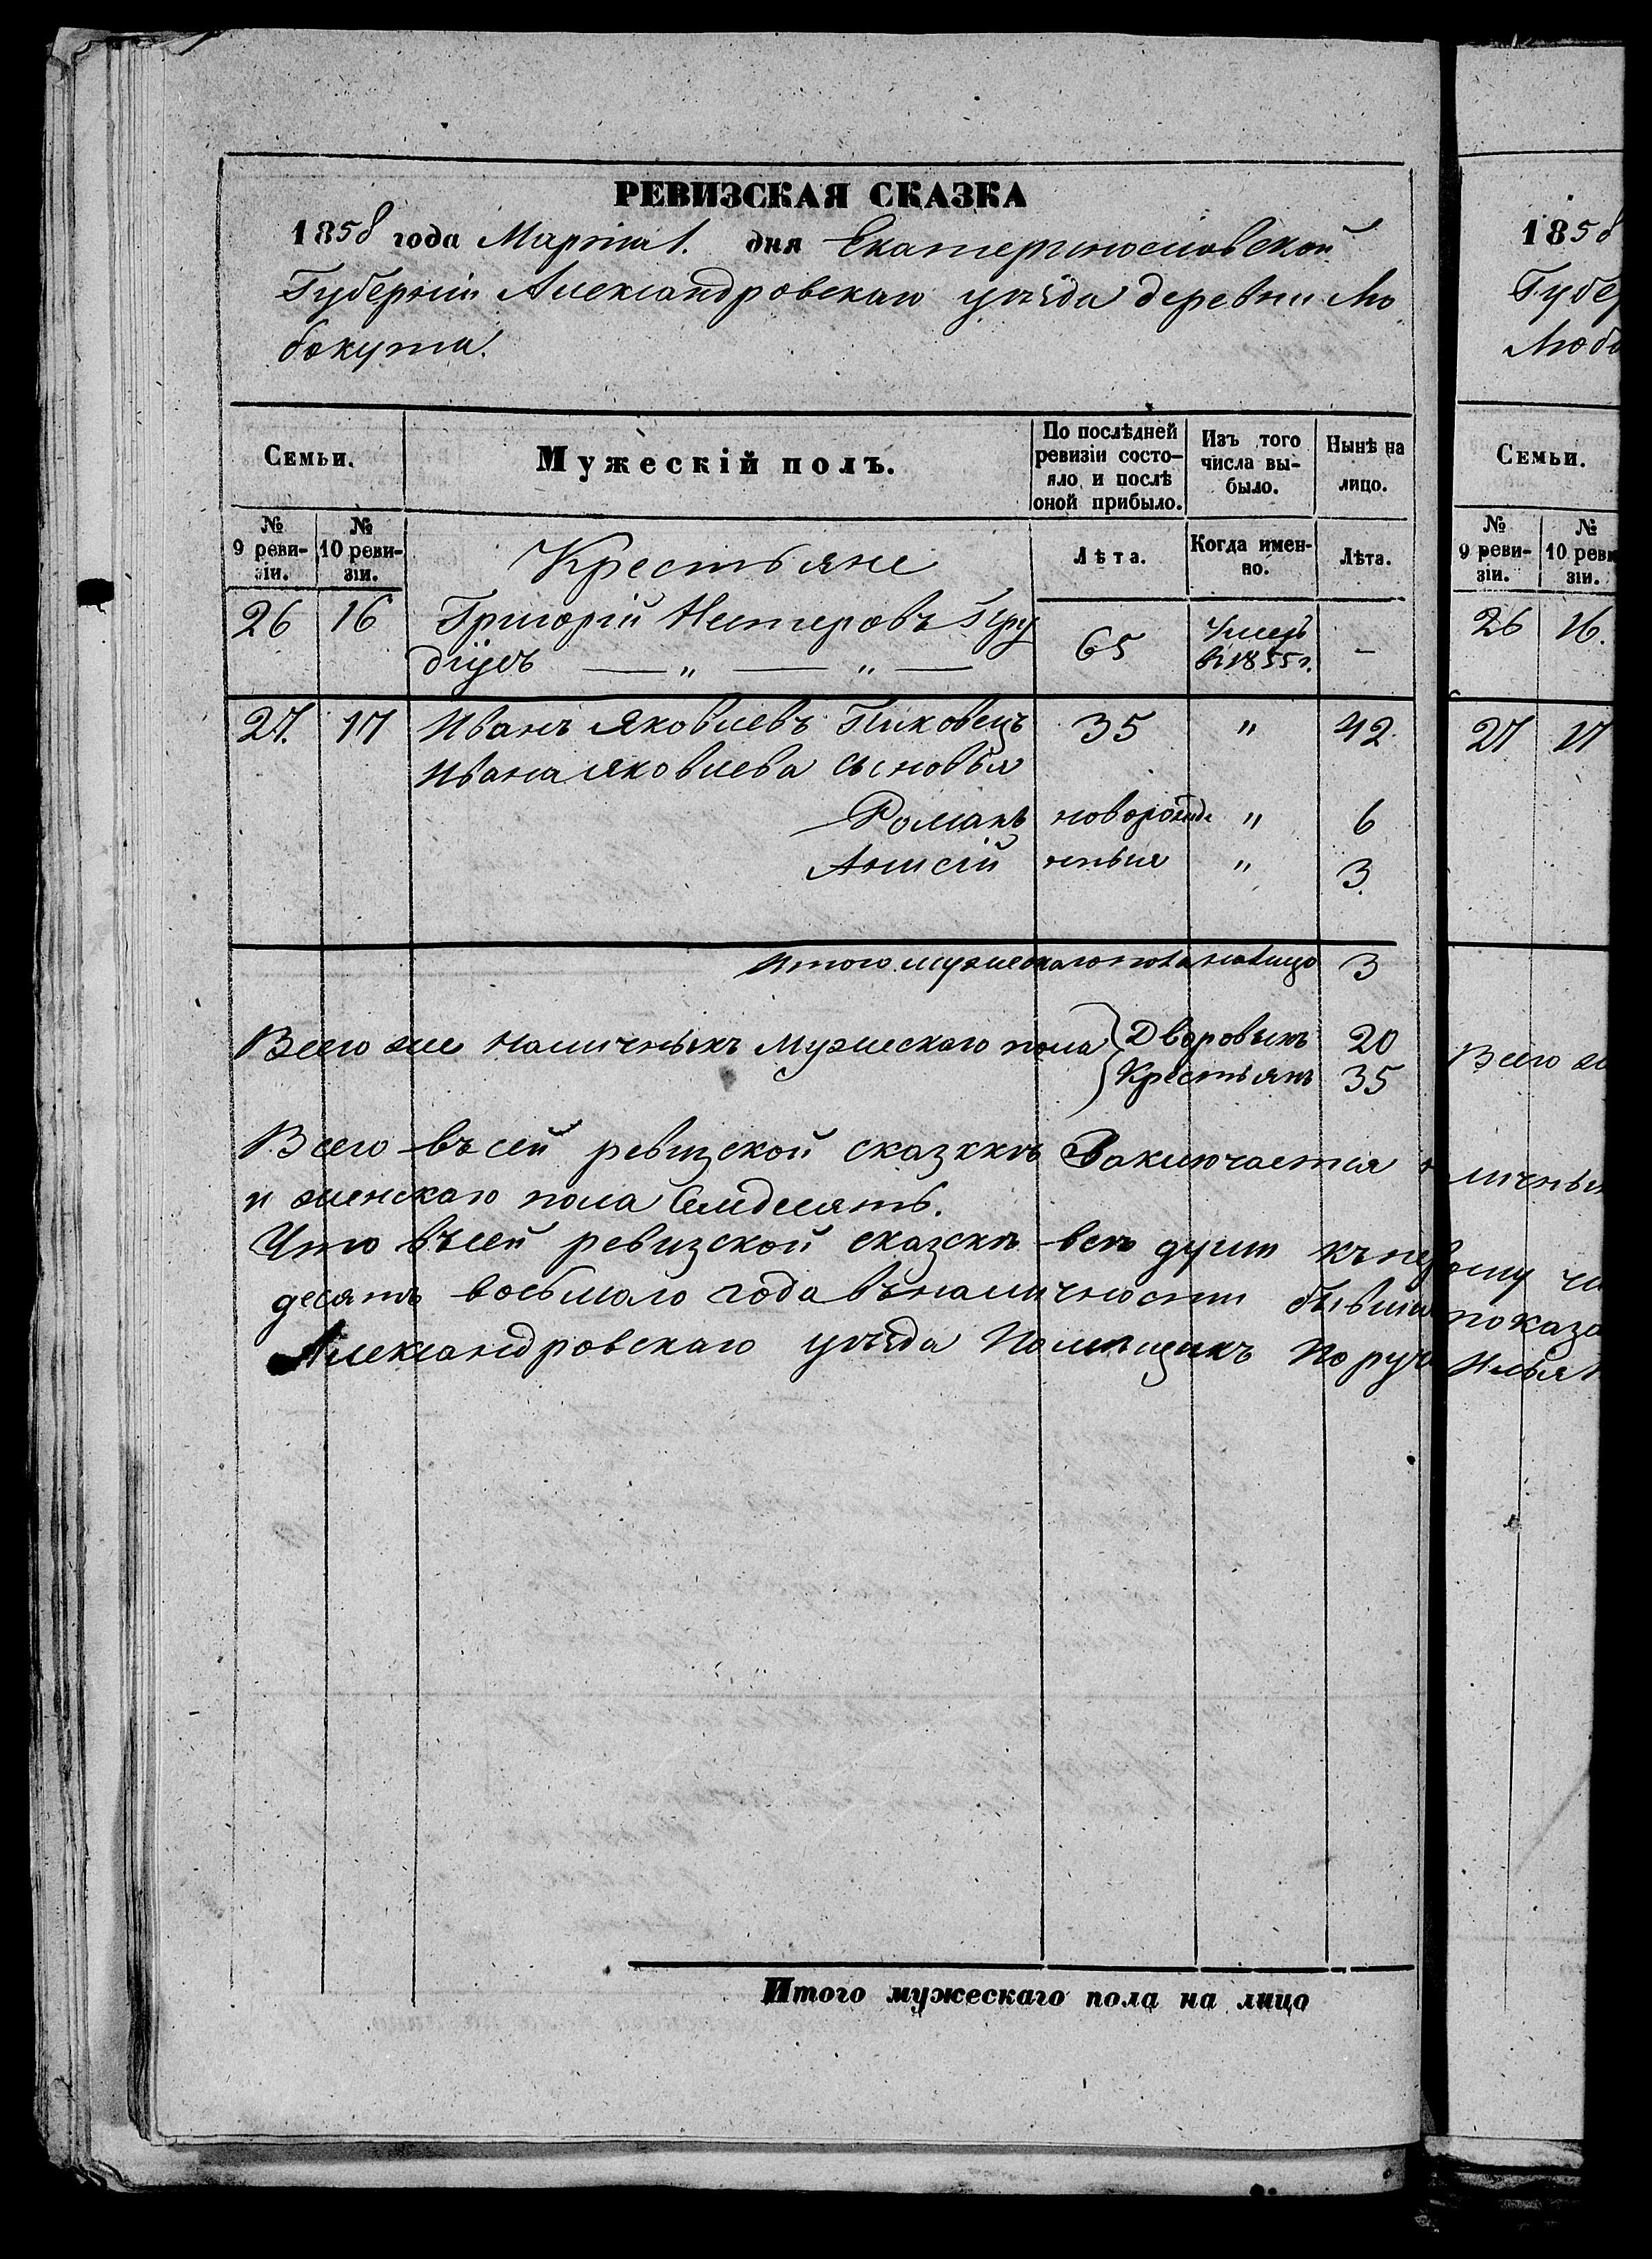 РЕВИЗСКАЯ СКАЗКА
1858 года Марта 1. дня Екатеринославской
Губерніи Александровскаго уѣзда деревни Лю
бокута.
Семьи.
Мужескій полъ.
По послѣдней ревизіи состо-
яло и послѣ оной прибыло.
Изъ того числа вы-
было.
Нынѣ на лицо.
№ 9 реви-
зіи.
№ 10 реви-
зіи.
Крестьяне
Лѣта.
Когда имен-
но.
Лѣта.
26 16 Григорій Нестеровъ 65 Умеръ –
въ 1855 г.
27. 17 Иванъ Яковлевъ 35 " 42.
Ивана Яковлева сыновья
Романъ новорожде " 6
нныя " 3.
Итого мужескаго пола налицо 3
Всего же наличныхъ мужескаго пола Дворовыхъ 20
Крестьянъ 35
Всего въ сей ревизской сказккѣ Заключается
и женскаго пола Семдесятъ.
Что въ сей ревизской сказскѣ всѣ души къ
десятъ восьмаго года въ наличности
Александровскаго уѣзда Помѣщикъ
Итого мужескаго пола на лицо
1858
Губер
Любо
Семьи.
№ 9 реви-
зіи.
№ 10 реви
зіи.
26 16.
27 17
Всего
показа
Илья